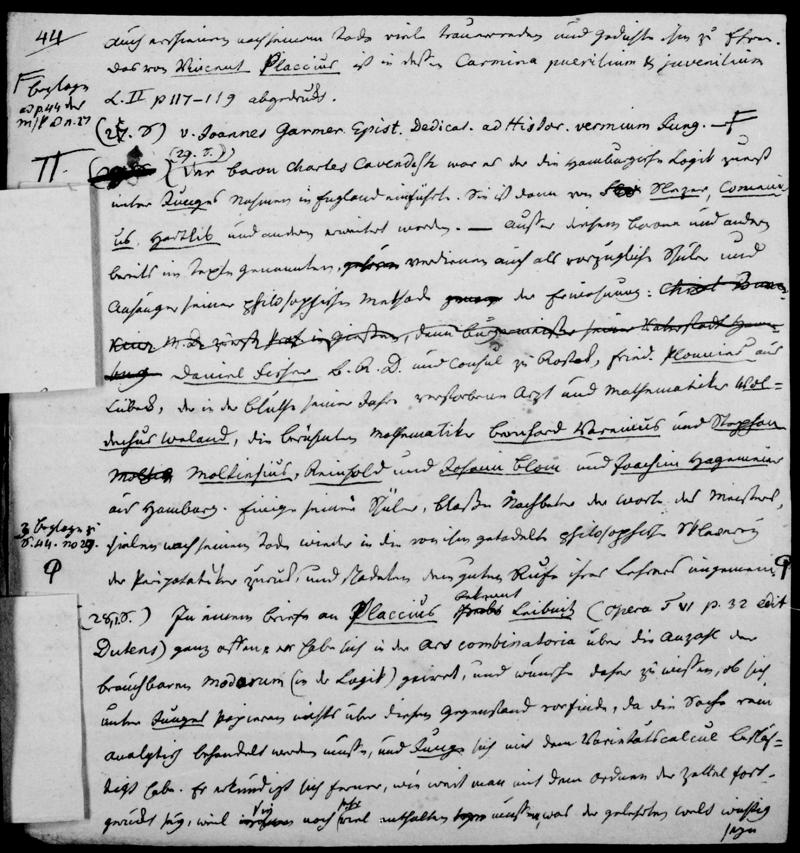 44
auch erschienen nach seinem Tode viele trauerreden und Gedichte ihm zu Ehren.
Das von Vincent Placcius ist in dessen Carmina puerilium & juvenilium
L. II p 117–119 abgedruckt.
Beylage
ad p. 44 der
(27. S) v. Joannes Garmer. Epist. Dedicat. ad Histor. vermium Jung.
II. (29. S.) Der baron Charles Cavendish war es der die Hamburgische Logik zuerst
unter Junges Nahmen in England einführte. Sie ist dann von Slazer, Comeni
us, Hartlib und andern erweitert worden. — Außer diesem Baron und andern
bereits im Texte genannten, verdienen auch als vorzügliche Schüler und
Anhänger seiner philosophischen Methode der Erwähnung:
Daniel Fischer L. R. D. und Consul zu Rostok, Fried. Plonnies aus
Lübeck, der in der blüthe seiner Jahre verstorbene Arzt und Mathematiker Wol=
dechus Weland, die berühmten Mathematiker Bernhard Varenius und Stephan
Moltinsius, Reinhold und Johann Blom und Joachim Hagemeier
aus Hamburg. Einige seiner Schüler, bloße Nachbeter der Worte des Meisters,
Beylage zu
S. 44. no 29.
fielen nach seinem Tode wieder in die von ihm getadelte philosophische Sklaverey
der Peripatetiker zurück, und schadeten dem guten Rufe ihres Lehrers ungemein
(28. S.) In einem briefe an Placcius bekennt Leibnitz (opera T VI p. 32 edit
Dutens) ganz offen, er habe sich in der Ars combinatoria über die Anzahl der
brauchbaren Modorum (in der Logik) geirrt, und wünsche daher zu wissen, ob sich
unter Junges papieren nichts über diesen Gegenstand vorfinde, da die Sache rein
analytisch behandelt werden müsse, und Junge sich mit dem Varietätscalcul beschäf=
tigt habe. Er erkundigt sich ferner, wie weit man mit dem ordnen der Zettel fort=
gerückt sey, weil sie noch sehr viel enthalten müssen, was der gelehrten welt wichtig
seyn